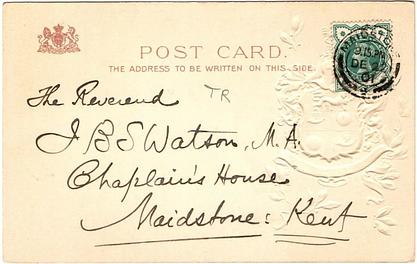 POST CARD.
THE ADDRESS TO BE WRITTEN ON THIS SIDE.
TR
The Reverend
J B S Watson, M.A.
Chaplain's House
Maidstone: Kent